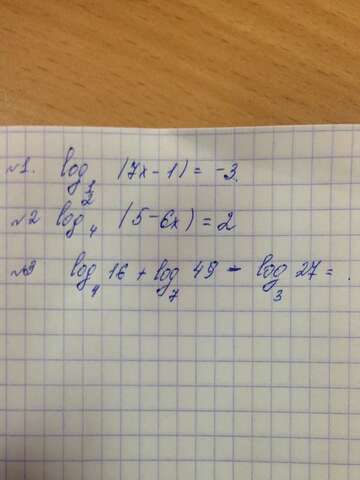 №1. log½ (7x-1) = -3.
№2 log₄ (5-6x) = 2
№3 log₄ 16 + log₇ 49 - log₃ 27 = .